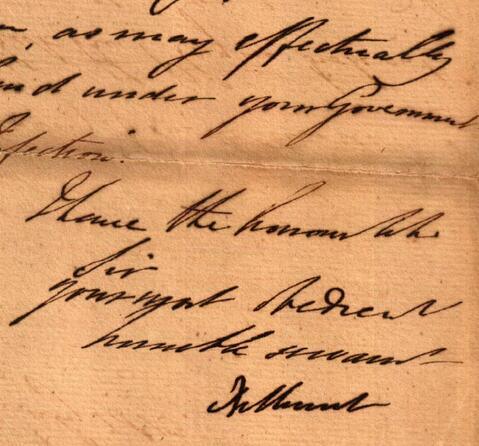 as may effectually
under your Government
I have the honour to be
Sir
your most obedient
humble servant